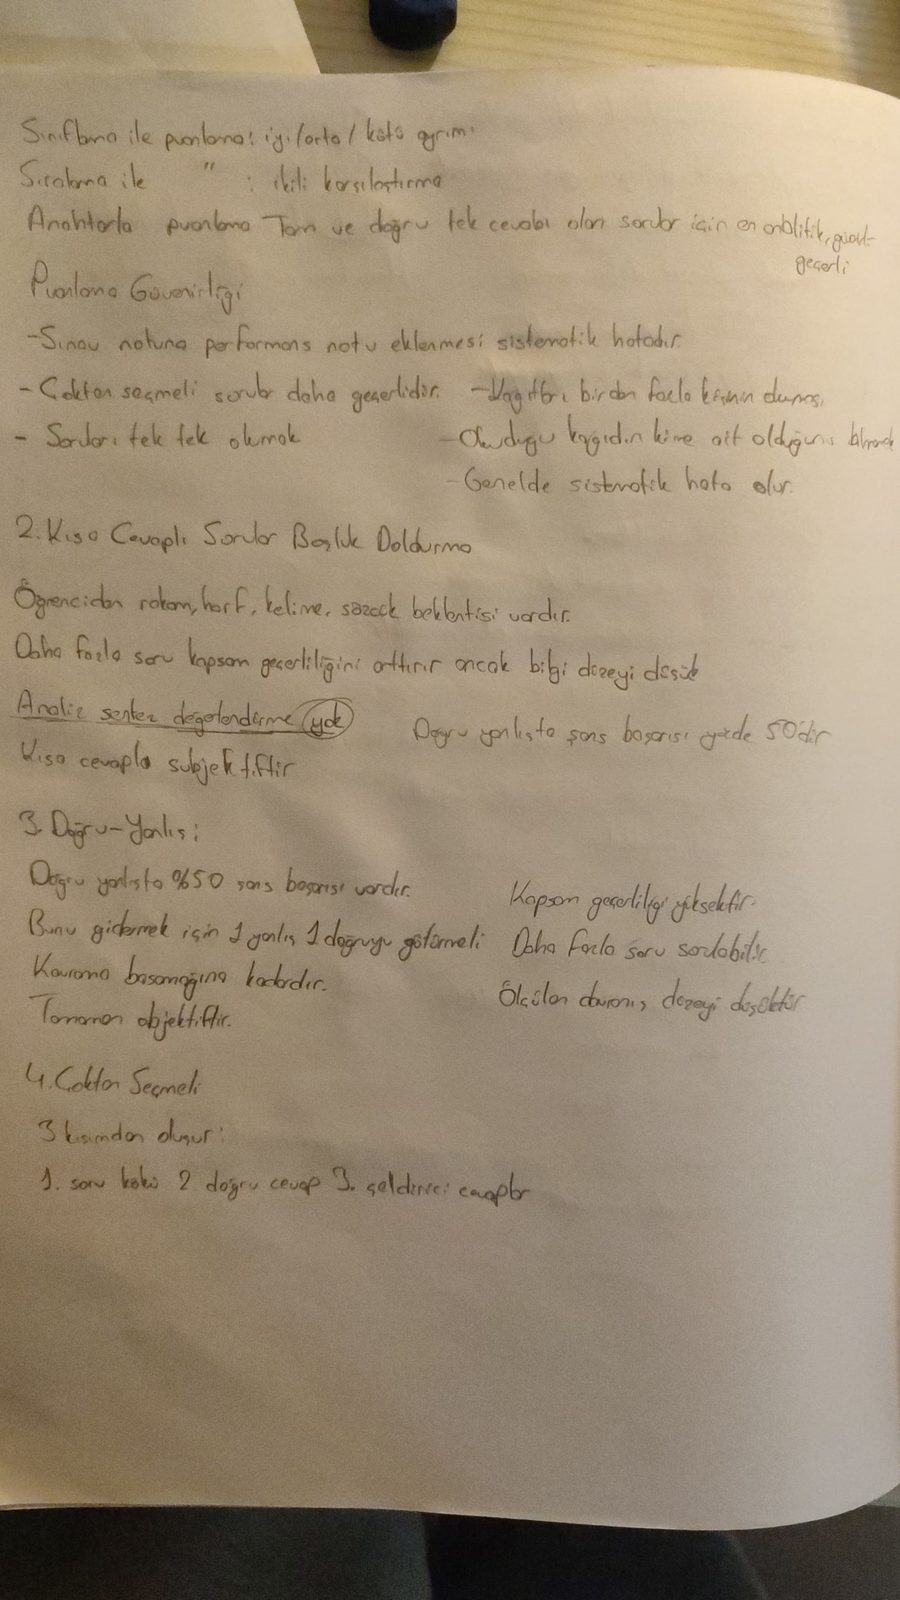 Sınıflama ile puanlama: iyi/orta/kötü ayrımı
Sıralama ile " : ikili karşılaştırma
Anahtarla puanlama Tam ve doğru tek cevabı olan sorular için en analitik, güvenilir-
geçerli
Puanlama Güvenirliği
- Sınav notuna performans notu eklenmesi sistematik hatadır.
- Çoktan seçmeli sorular daha geçerlidir. - Kağıtları birden fazla kişinin okuması
- Soruları tek tek okumak - Okuduğu kağıdın kime ait olduğunu bilmemek
- Genelde sistematik hata olur.
2. Kısa Cevaplı Sorular Boşluk Doldurma
Öğrenciden rakam, harf, kelime, sözcük beklentisi vardır.
Daha fazla soru kapsam geçerliliğini arttırır ancak bilgi düzeyi düşük
Analiz sentez değerlendirme yok Doğru yanlışta şans başarısı yüzde 50'dir
Kısa cevapla subjektiftir
3. Doğru-Yanlış:
Doğru yanlışta %50 şans başarısı vardır. Kapsam geçerliliği yüksektir.
Bunu gidermek için 1 yanlış 1 doğruyu götürmeli Daha fazla soru sorulabilir.
Kavrama basamağına kadardır. Ölçülen davranış düzeyi düşüktür
Tamamen objektiftir.
4. Çoktan Seçmeli
3 kısımdan oluşur:
1. soru kökü 2. doğru cevap 3. çeldirici cevaplar